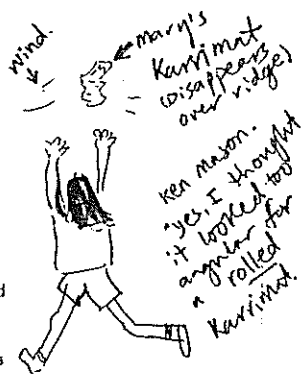 wind.
Mary's
Karrimat
(Disappears
over ridge)
Ken Mason.
"yes, I thought
it looked too
angular for
a rolled
Karrimat.